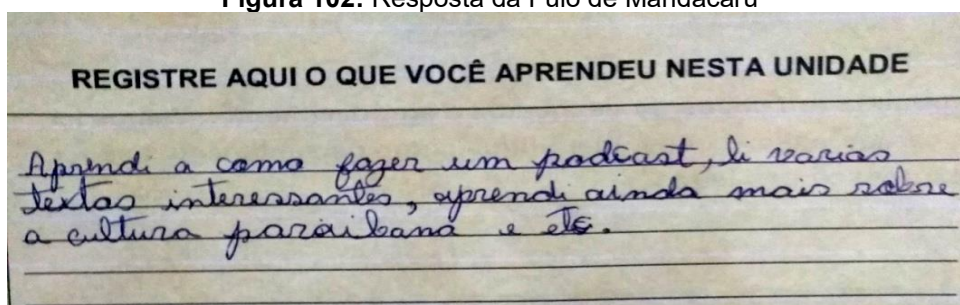 Figura 102: Resposta da Fulô de Mandacaru
REGISTRE AQUI O QUE VOCÊ APRENDEU NESTA UNIDADE
Aprendi a como fazer um podcast, li varias
textos interessantes, aprendi ainda mais sobre
a cultura paraibana e etc.